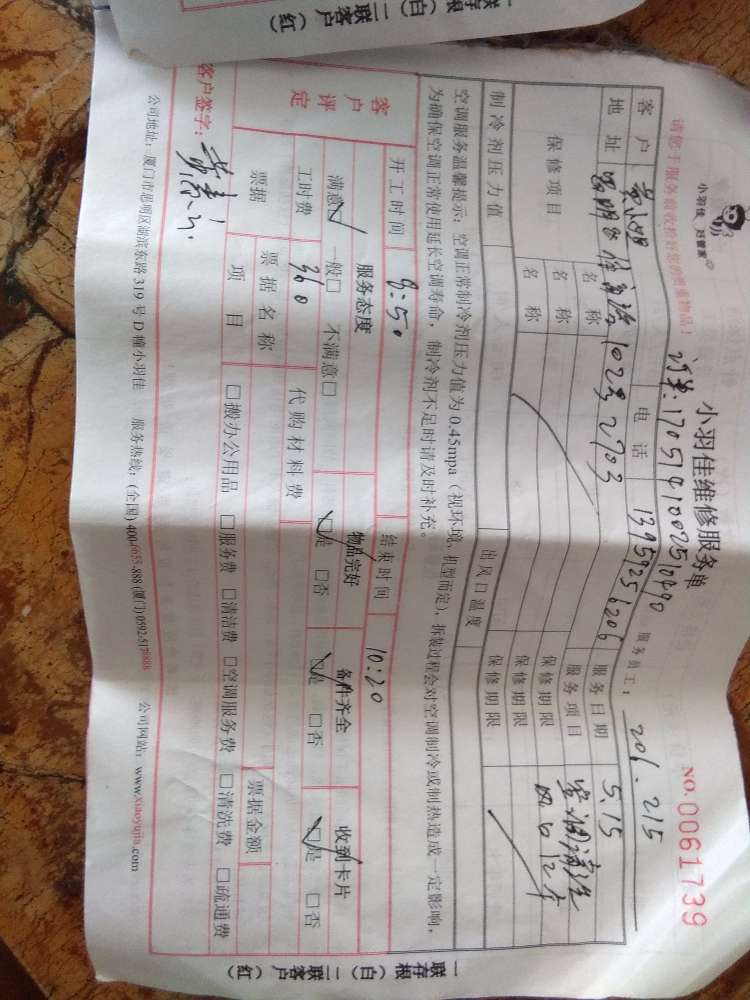 一联存根（白）二联客户（红）
小羽佳 好管家
小羽佳维修服务单
NO.0061739
请您于服务前收拾好您的贵重物品！
订单.170514100251040
服务员工：206.215
客户 黄小姐 电话 13959256206 服务日期 5.15
地址 102号2703 服务项目 空调清洗
保修项目 名称 保修期限 四口12年
名称 保修期限
制冷剂压力值 出风口温度
空调服务温馨提示：空调正常制冷剂压力值为0.45mpa（视环境、机型而定），拆装过程会对空调制冷或制热造成一定影响，
为确保空调正常使用延长空调寿命，制冷剂不足时请及时补充。
开工时间 8:50 结束时间 10:20
客户评定 服务态度 物品完好 备件齐全 收到卡片
满意☑ 一般□ 不满意□ ☑是 □否 ☑是 □否 ☑是 □否
工时费 360 代购材料费
票据 票据名称 票据金额
项目 □搬办公用品 □服务费 □清洁费 □空调服务费 □清洗费 □疏通费
客户签字：
公司地址：厦门市思明区湖滨东路319号D幢小羽佳 服务热线：(全国)400-6655-888 (厦门)0592-5178888 公司网站：www.xiaoyujia.com
一联存根（白）二联客户（红）